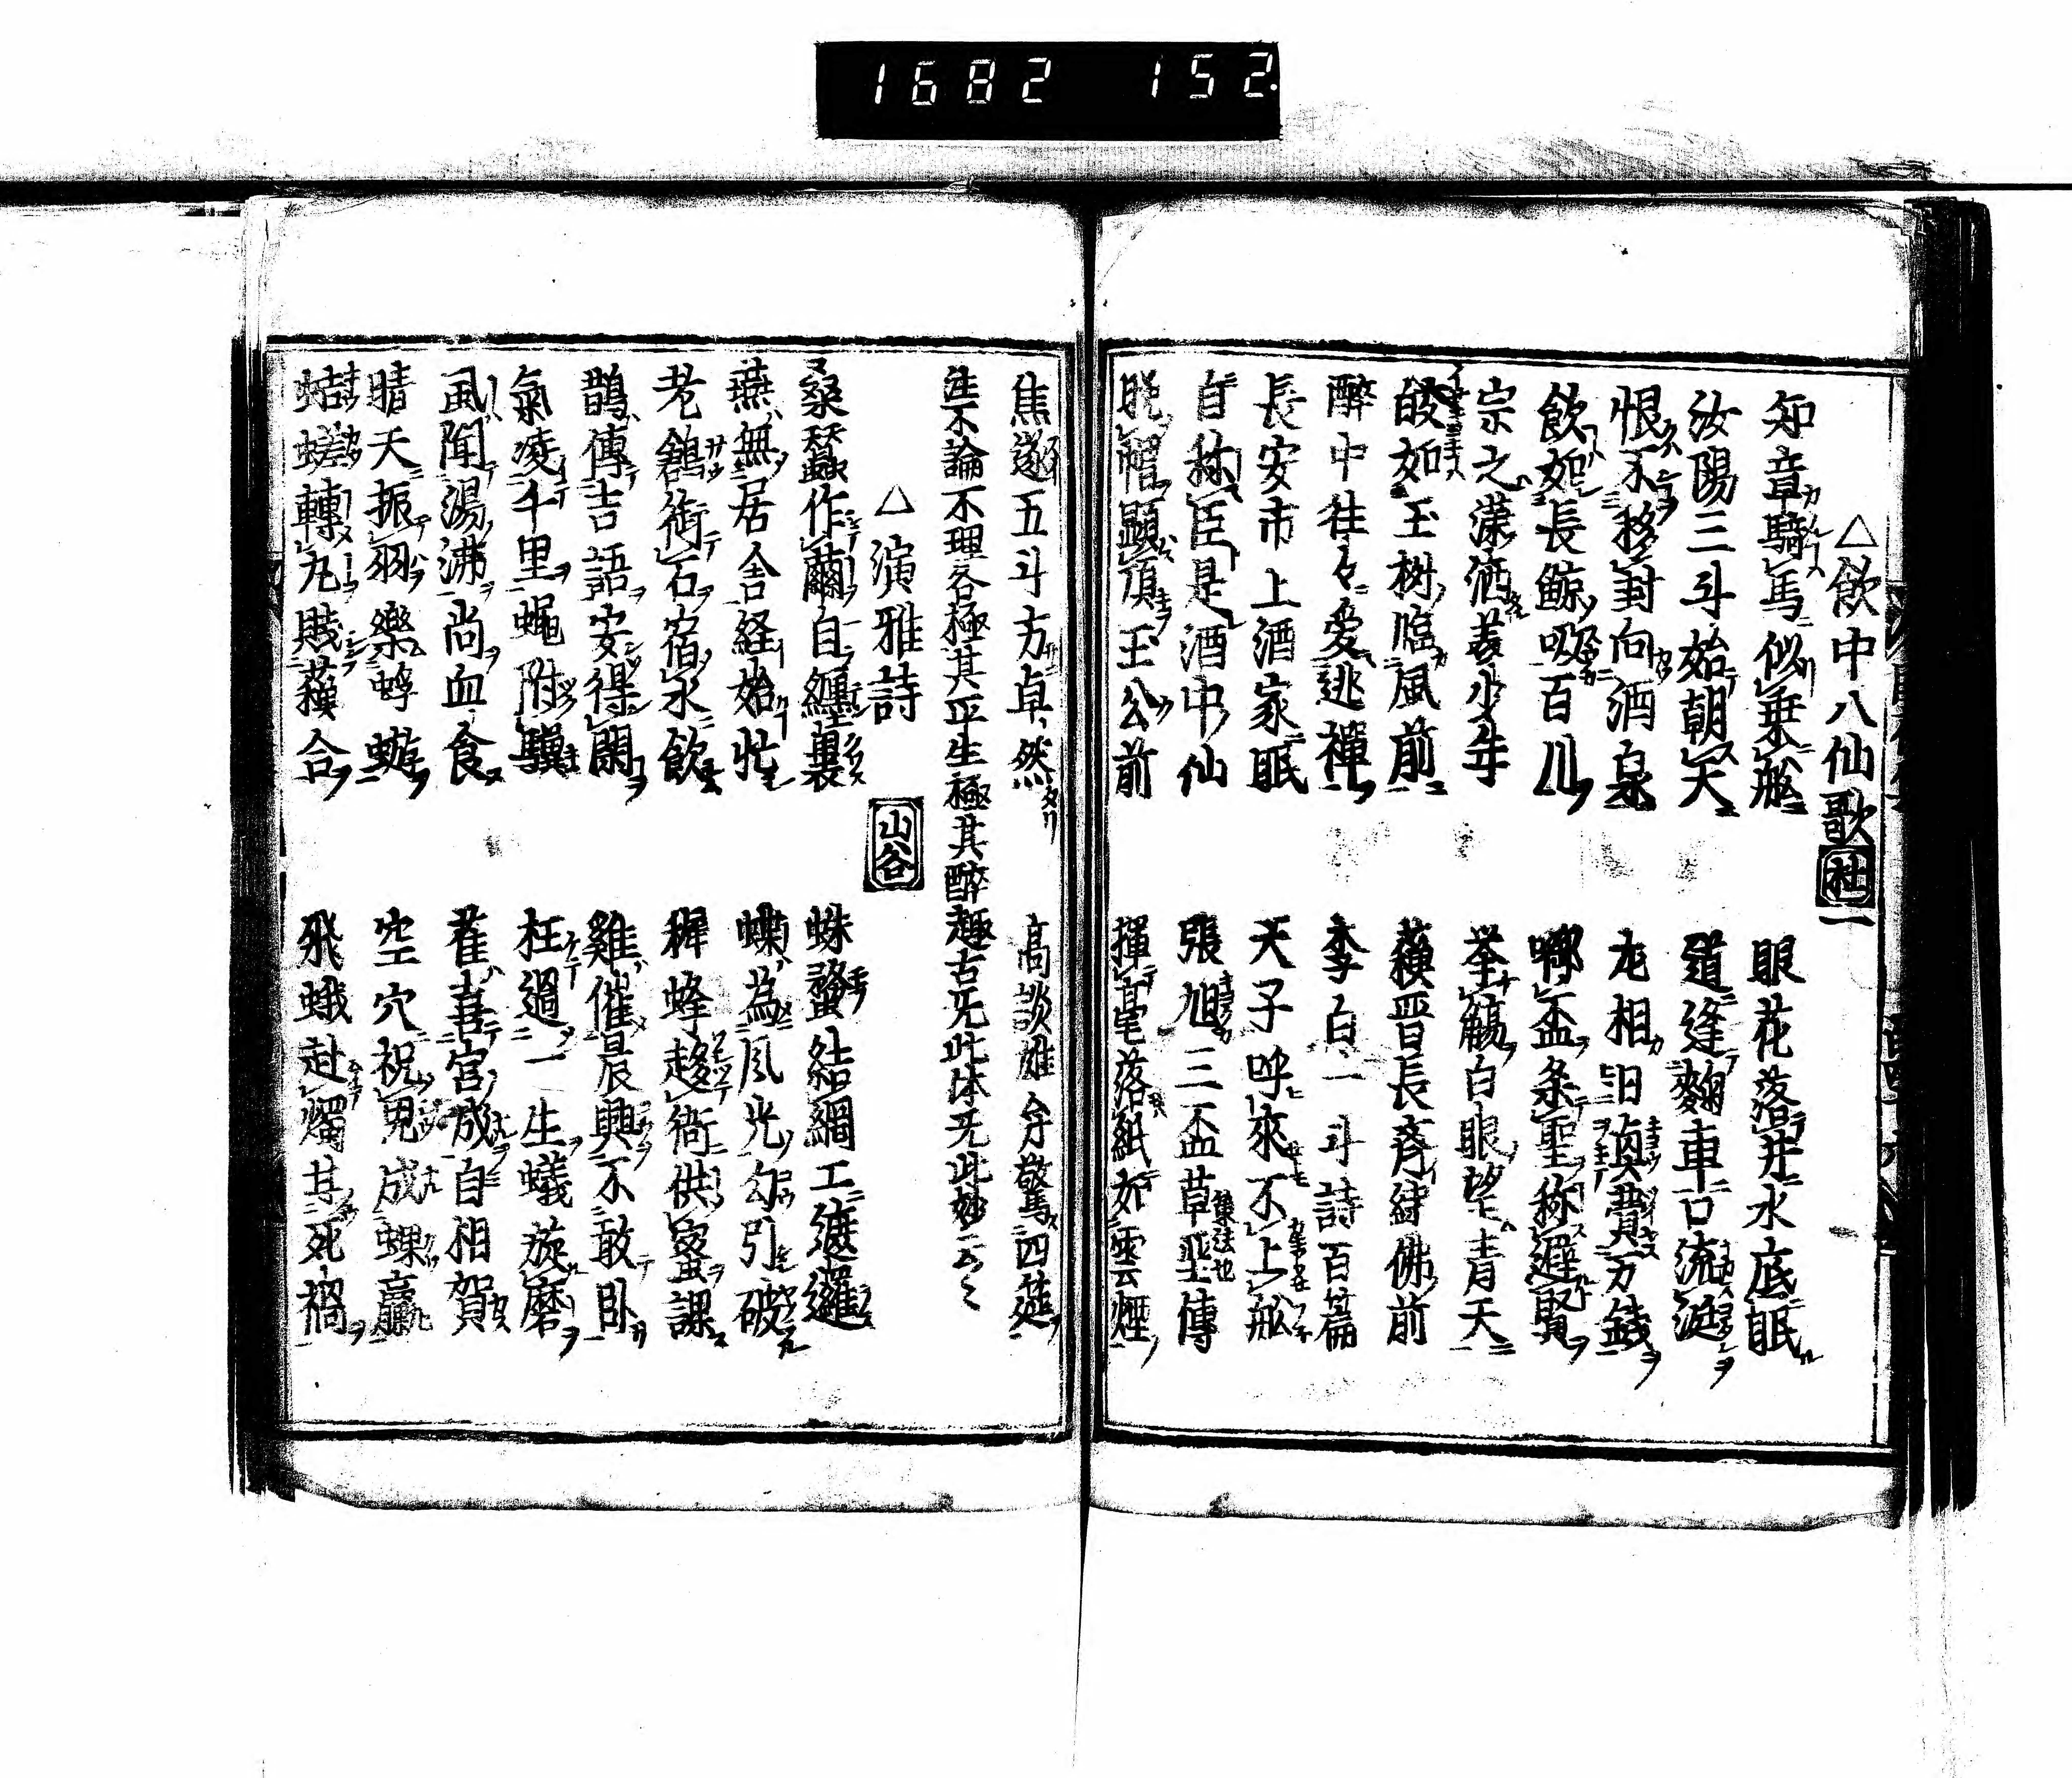 1682 152
△飲中八仙歌 杜一
知章騎馬似乗舩 眼花落井水底眠
汝陽三斗始朝天 道逢麹車口流涎
恨不移封向酒泉 左相日興費万銭
飲如長鯨吸百川 啣盃楽聖称避賢
宗之瀟洒美少年 挙觴白眼望青天
皎如玉樹臨風前 蘓晋長斎繍佛前
醉中往々愛逃禪 李白一斗詩百篇
長安市上酒家眠 天子呼來不上舩
自称臣是酒中仙 張旭三盃草聖傳
脱帽顕頂王公前 揮毫落紙如雲煙
焦遂五斗方卓然 高談雄弁驚四筵
注不論不理各極其平生極其醉趣古无此体无此妙云々
△演雅詩 山谷
桑蚕作繭自纏裹 蛛蝥結網工遮邏
燕無居舎経始忙 蝶為風光勾引破
老鶬銜石宿水飲 穉蜂趍衙供蜜課
鵲傳吉語安得閑 雞催晨興不敢臥
氣凌千里蝿附驥 枉過一生蟻旋磨
虱聞湯沸尚血食 雀喜宮成自相賀
晴天振羽樂蜉蝣 空穴祝児成蜾蠃
蛣蜣轉丸賤蘓合 飛蛾赴燭甘死禍